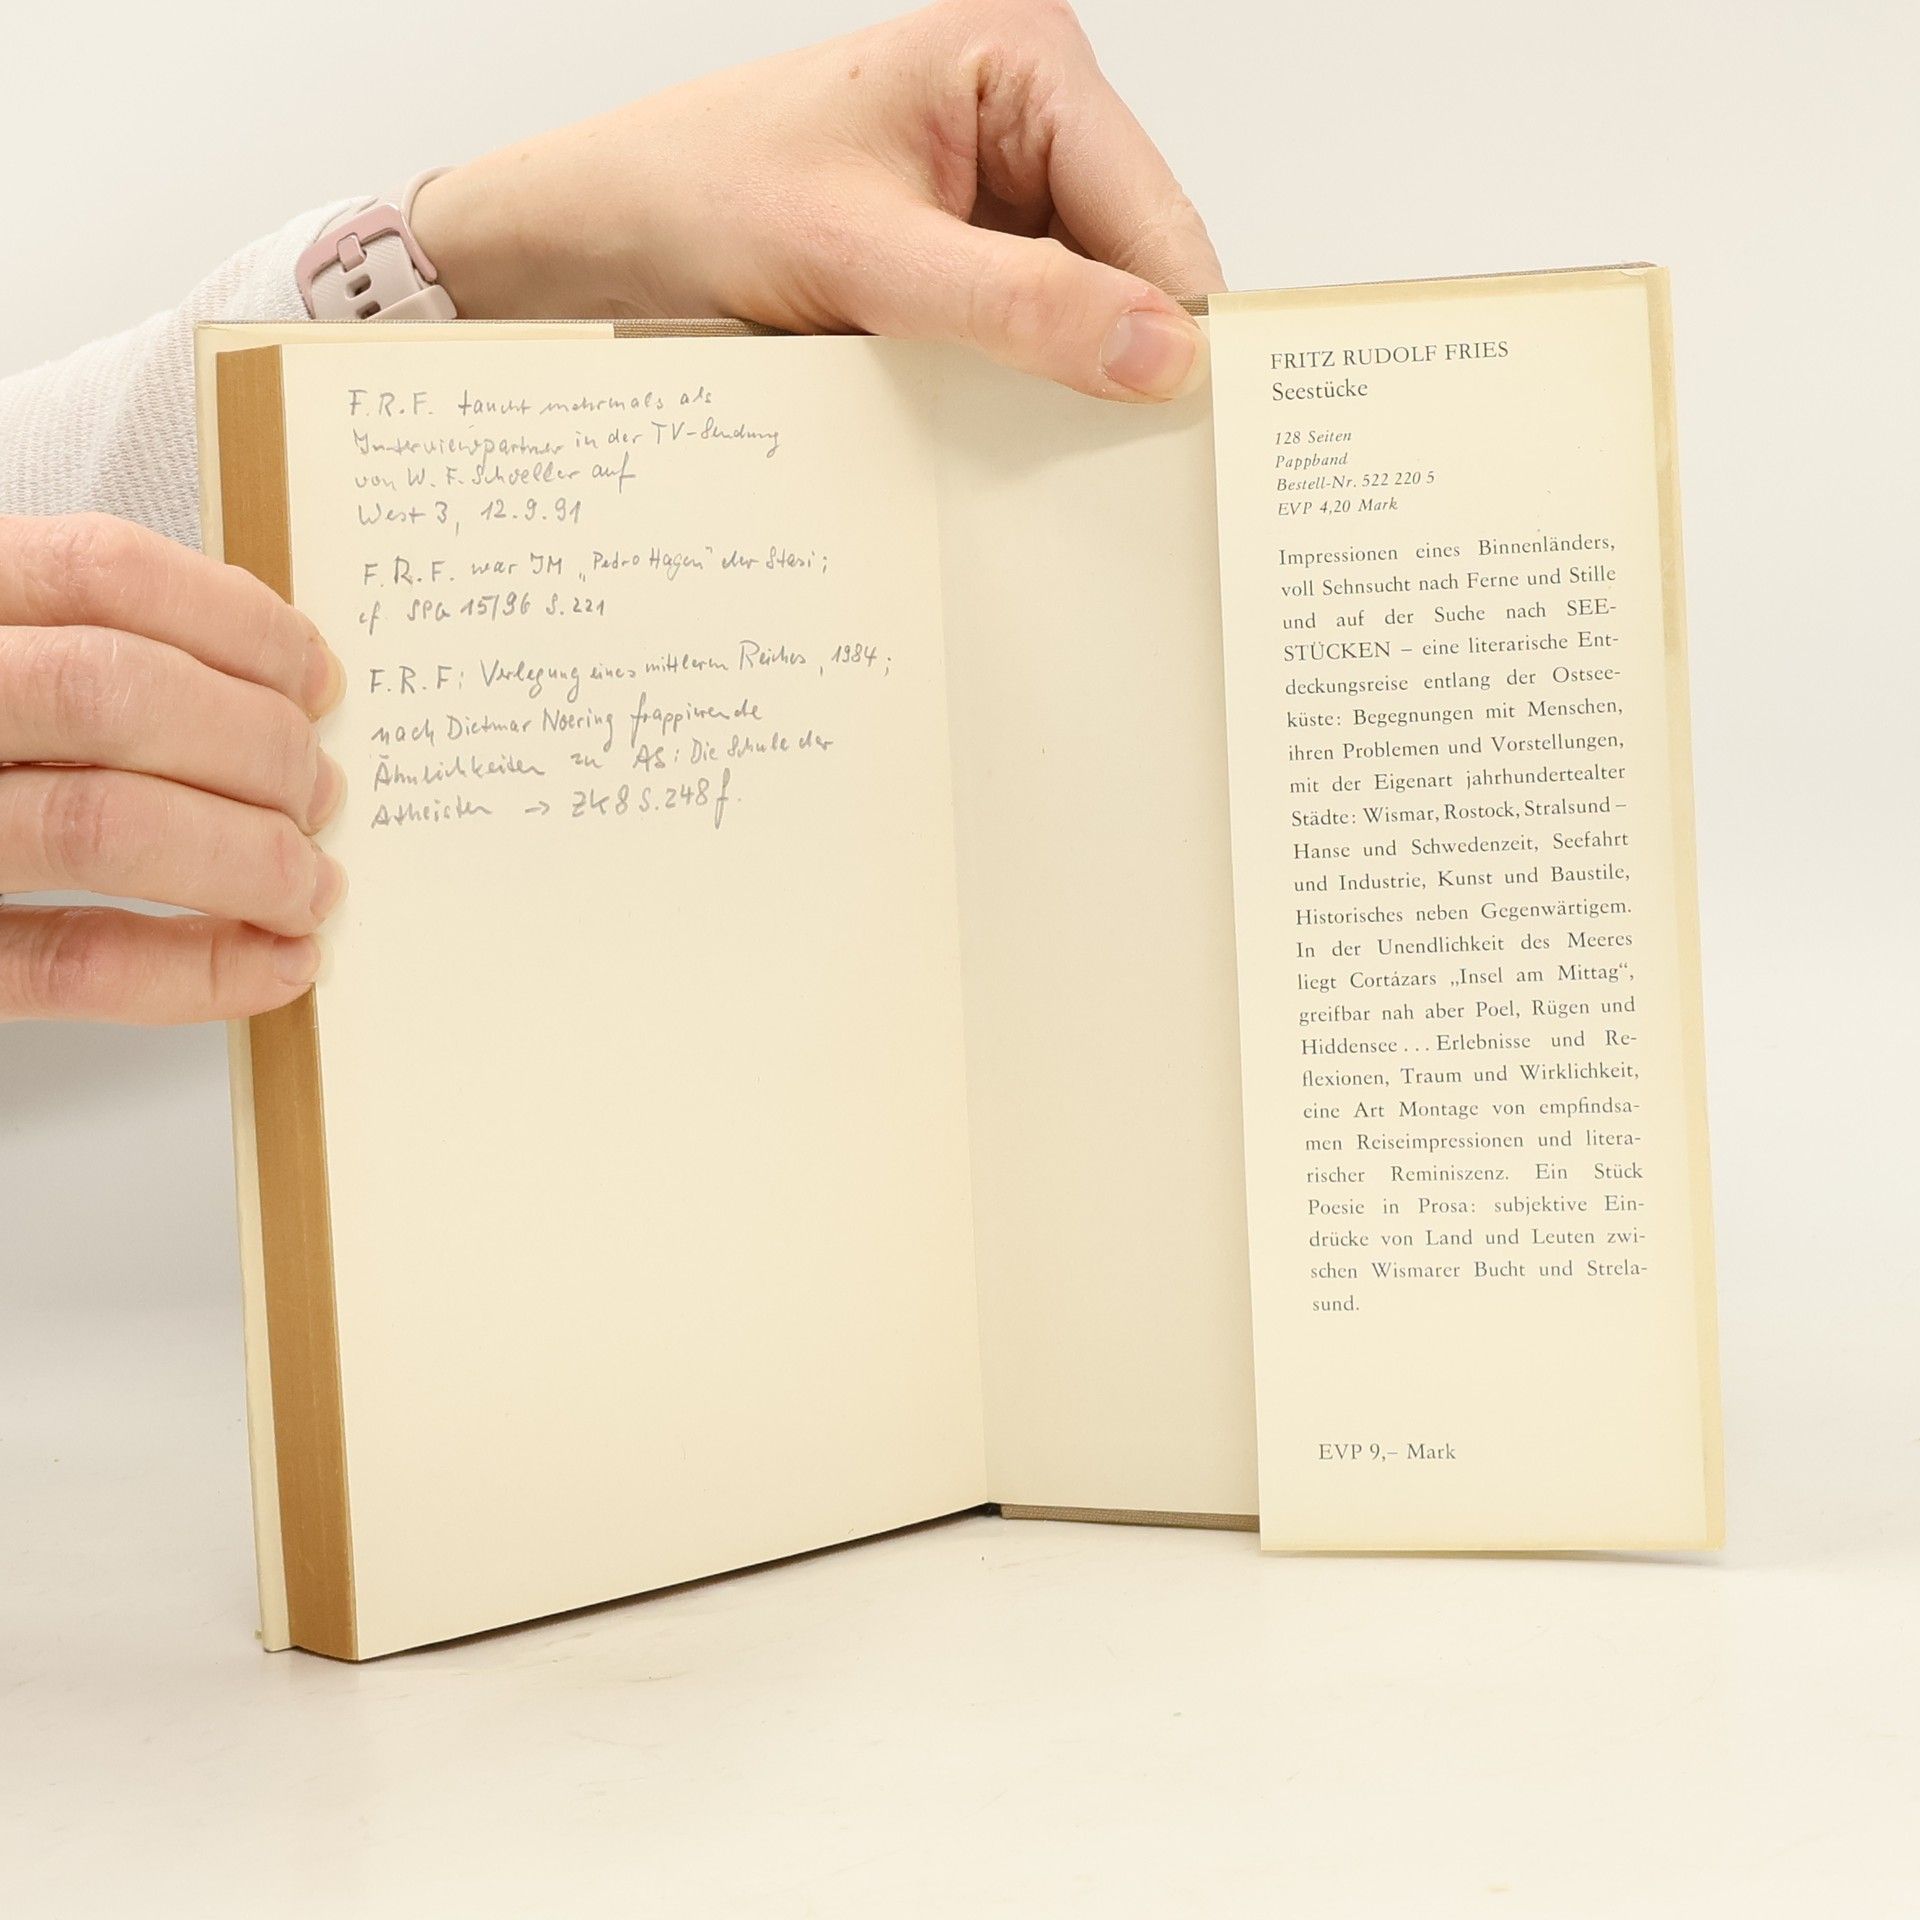 F.R.F. taucht mehrmals als
Interviewpartner in der TV-Sendung
von W. F. Schoeller auf
West 3, 12.9.91
F.R.F. war IM „Pedro Hagen" der Stasi;
cf. SPG 15/96 S. 221
F.R.F: Verlegung eines mittleren Reiches, 1984;
nach Dietmar Noering frappierende
Ähnlichkeiten zu AS: Die Schule der
Atheisten → ZK8 S. 248 f.
FRITZ RUDOLF FRIES
Seestücke
128 Seiten
Pappband
Bestell-Nr. 522 220 5
EVP 4,20 Mark
Impressionen eines Binnenländers,
voll Sehnsucht nach Ferne und Stille
und auf der Suche nach SEE-
STÜCKEN – eine literarische Ent-
deckungsreise entlang der Ostsee-
küste: Begegnungen mit Menschen,
ihren Problemen und Vorstellungen,
mit der Eigenart jahrhundertealter
Städte: Wismar, Rostock, Stralsund –
Hanse und Schwedenzeit, Seefahrt
und Industrie, Kunst und Baustile,
Historisches neben Gegenwärtigem.
In der Unendlichkeit des Meeres
liegt Cortázars „Insel am Mittag“,
greifbar nah aber Poel, Rügen und
Hiddensee . . . Erlebnisse und Re-
flexionen, Traum und Wirklichkeit,
eine Art Montage von empfindsa-
men Reiseimpressionen und litera-
rischer Reminiszenz. Ein Stück
Poesie in Prosa: subjektive Ein-
drücke von Land und Leuten zwi-
schen Wismarer Bucht und Strela-
sund.
EVP 9,– Mark